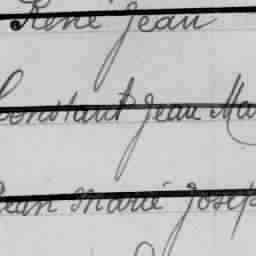 René Jean
Constant Jean Ma
Jean Marie Josep